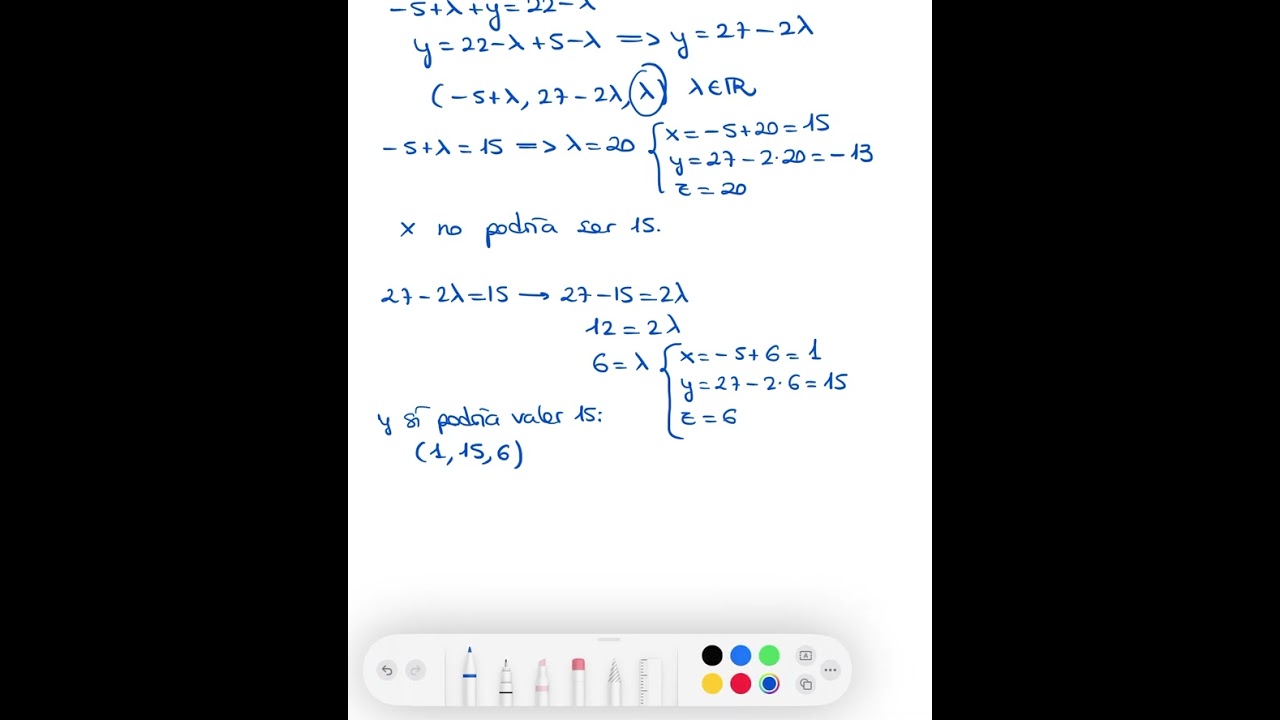 -5+λ+y=22-λ
y=22-λ+5-λ => y=27-2λ
(-5+λ, 27-2λ, λ) λ∈ℝ
-5+λ=15 => λ=20 { x=-5+20=15
y=27-2·20=-13
z=20
x no podría ser 15.
27-2λ=15 → 27-15=2λ
12=2λ
6=λ { x=-5+6=1
y=27-2·6=15
z=6
y sí podría valer 15:
(1,15,6)